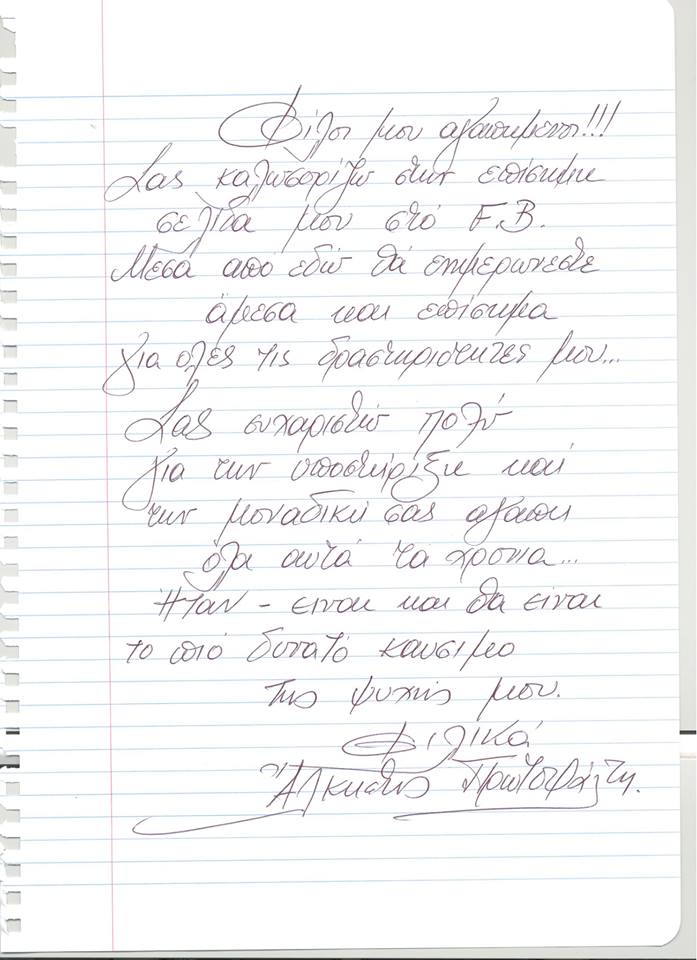 Φίλοι μου αγαπημένοι!!!
Σας καλωσορίζω στην επίσημη
σελίδα μου στό F.B.
Μέσα από εδώ θά ενημερώνεστε
άμεσα και επίσημα
για όλες τις δραστηριότητές μου...
Σας ευχαριστώ πολύ
για την υποστήριξη καί
την μοναδική σας αγάπη
όλα αυτά τα χρόνια...
Ήταν - ειναι και θα είναι
το πιό δυνατό καυσιμο
της ψυχής μου.
Φιλικά
Άλκηστις Πρωτοψάλτη.